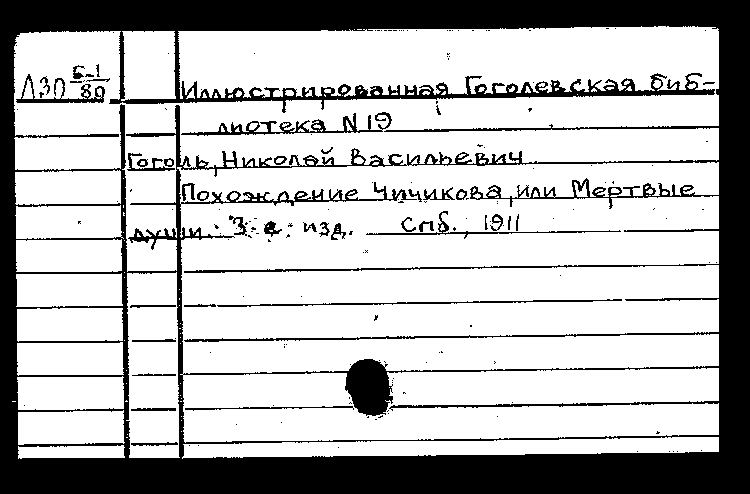 Л30 Б-1/89
Иллюстрированная Гоголевская биб-
лиотека N 19
Гоголь, Николай Васильевич
Похождение Чичикова, или Мертвые
души. 3-е изд. Спб., 1911